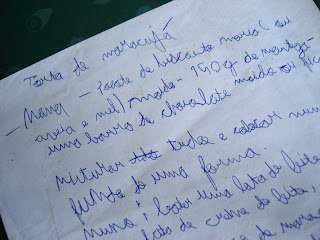 Torta de maracujá
— Massa — Pacote de biscoito maria (ou
areia e mel) - moído - 150 g de manteiga -
uma barra de chocolate moído ou
misturar tudo e colocar num
fundo de uma forma.
numa; bater uma lata de leite
lata de creme de leite,
de mara